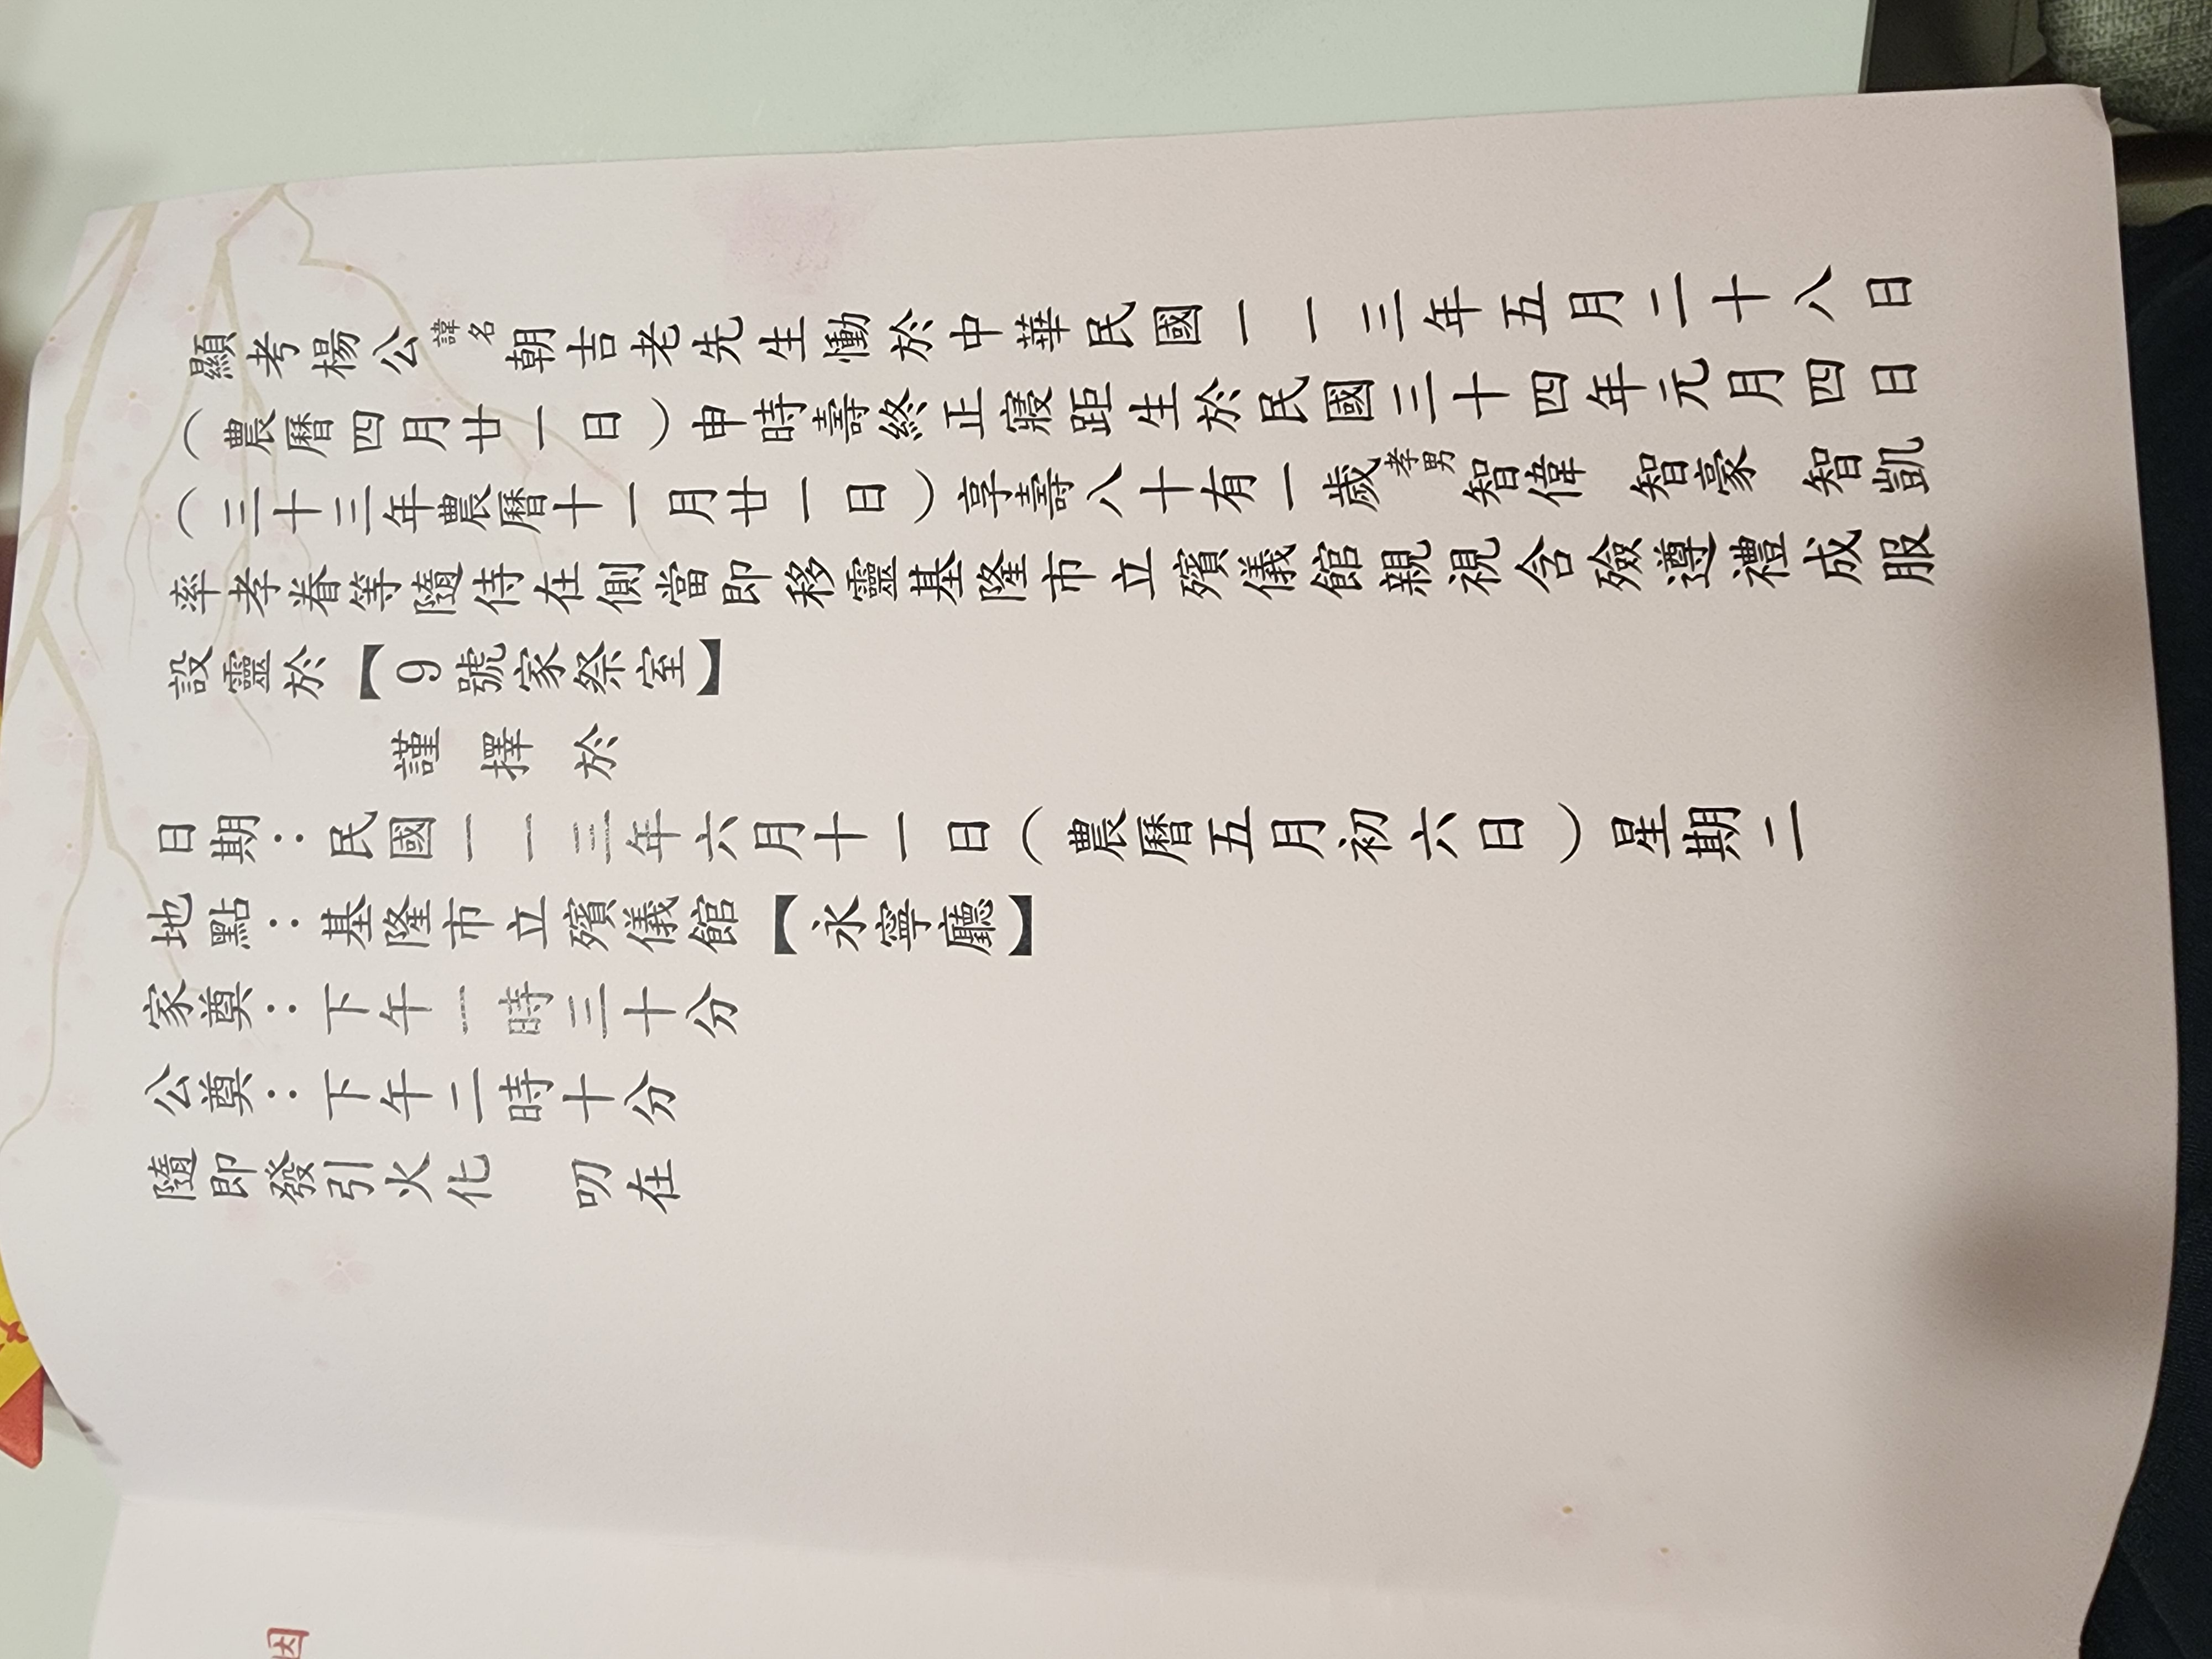 顯考楊公諱名朝吉老先生慟於中華民國一一三年五月二十八日
（農曆四月廿一日）申時壽終正寢距生於民國三十四年元月四日
（三十三年農曆十一月廿一日）享壽八十有一歲孝男智偉　智豪　智凱
率孝眷等隨侍在側當即移靈基隆市立殯儀館親視含殮遵禮成服
設靈於【9號家祭室】
謹擇於
日期：民國一一三年六月十一日（農曆五月初六日）星期二
地點：基隆市立殯儀館【永寧廳】
家奠：下午一時三十分
公奠：下午二時十分
隨即發引火化　叨在